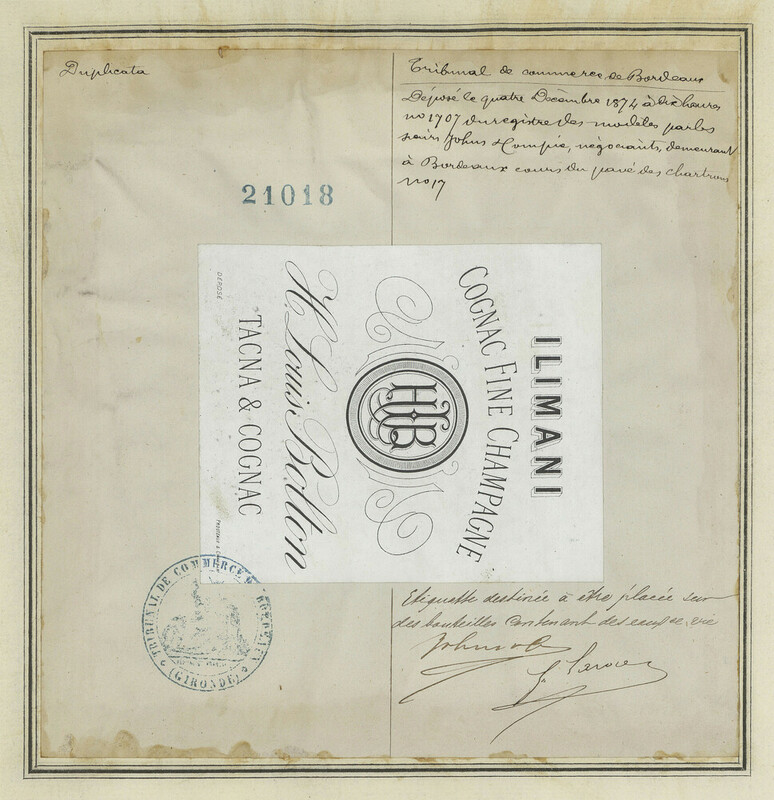 Duplicata
Tribunal de commerce de Bordeaux
Déposé le quatre Décembre 1874 à dix heures
no 1707 du registre des modèles par les
sieurs Johns & Compie, négociants, demeurant
à Bordeaux cours du pavé des Chartrons
no 17
21018
ILIMANI
COGNAC FINE CHAMPAGNE
HLB
H. Louis Bolton
TACNA & COGNAC
DÉPOSÉ
TRIBUNAL DE COMMERCE DE BORDEAUX
(GIRONDE)
Etiquette destinée à être placée sur
des bouteilles contenant des eaux de vie